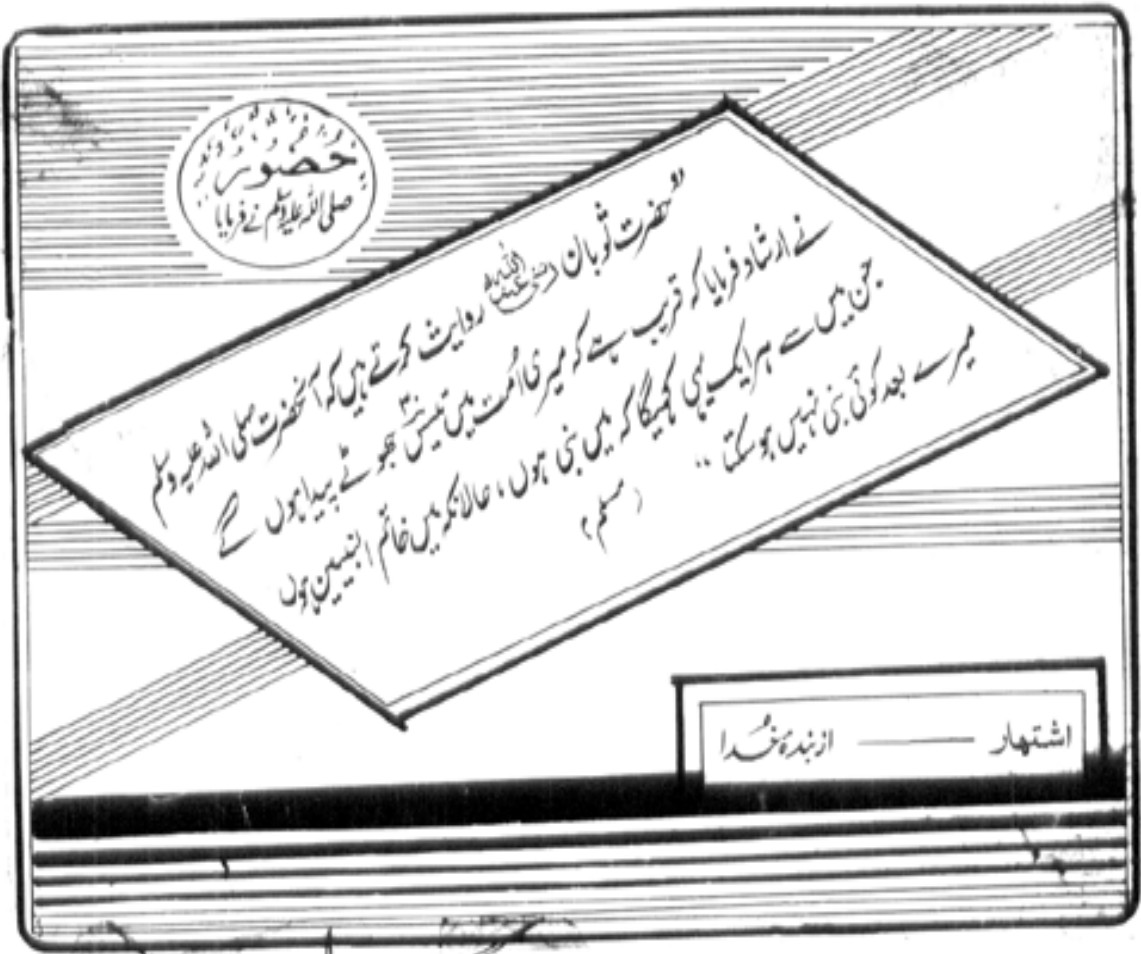 حضور
صلی اللہ علیہ وسلم نے فرمایا
” حضرت ثوبان رضی اللہ عنہ روایت کرتے ہیں کہ آنحضرت صلی اللہ علیہ وسلم
نے ارشاد فرمایا کہ قریب ہے کہ میری اُمت میں تیس۳۰ جھوٹے پیدا ہوں گے
جن میں سے ہر ایک یہی کہیگا کہ میں نبی ہوں، حالانکہ میں خاتم النبیین ہوں
میرے بعد کوئی نبی نہیں ہو سکتا “
(مسلم)
اشتہار —— از بندۂ خُدا